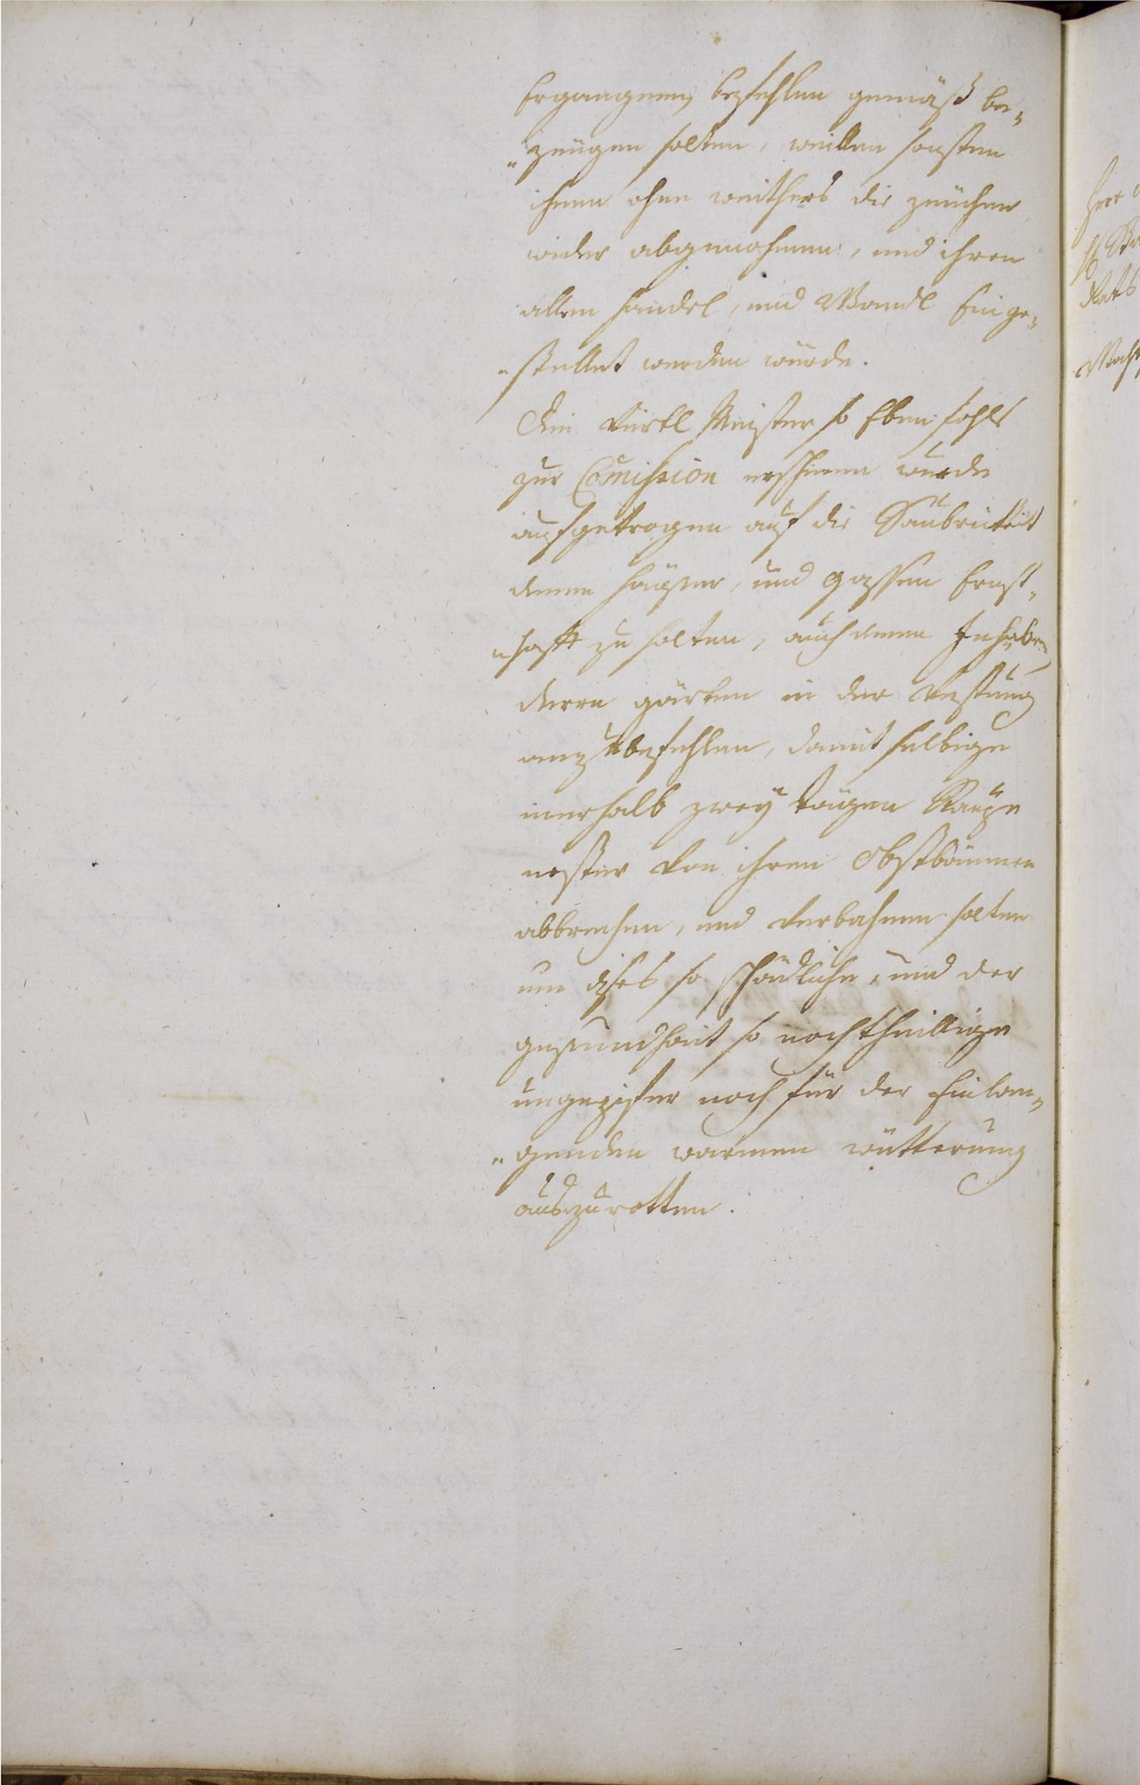 Ergangenen befehlen gemäß be„
„zeügen solten, weillen sonsten
ihnen ohne weithers die zeüchen
wider abgenohmen, und ihnen
allem handel, und Wandl Einge„
„stellet werden würde.
Die Viertl Meister so Eben fahls
zur Commission erschinen wurde
aufgetragen auf die Saubrickeit
denen häüßer, und gassen Ernst„
„hafft zu halten, auch denen Inhabern
deren gärten in der Vestung
anzubefehlen, damit selbige
innerhalb zweÿ tägen Raupe
nester von ihren Obstbäumen
abbrechen, und Verbahnen solten
um dises so schädliche, und der
gesundheit so nachtheillige
ungezifer noch für der Einlan„
„genden warmen witterung
auszurotten.
Herr
Rats